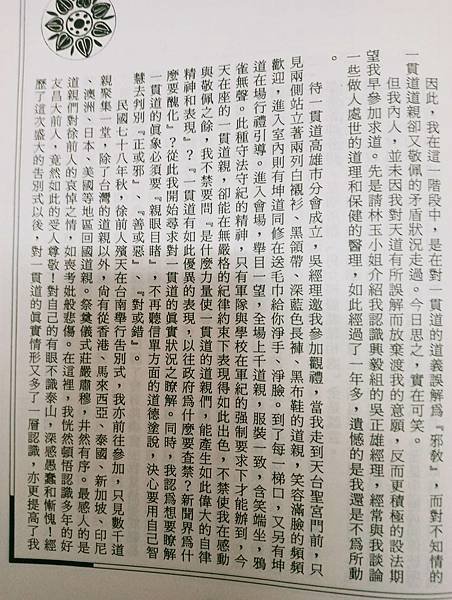 因此，我在這一階段中，是在對一貫道的道義誤解為『邪教』，而對不知情的
一貫道道親卻又敬佩的矛盾狀況走過。今日思之，實在可笑。
但我內人，並未因我對天道有所誤解而放棄渡我的意願，反而更積極的設法期
望我早參加求道。先是請林玉小姐介紹我認識興毅組的吳正雄經理，經常與我談論
一些做人處世的道理和保健的醫理，如此經過了一年多，遺憾的是我還是不為所動
。
待一貫道高雄市分會成立，吳經理邀我參加觀禮，當我走到天台聖宮門前，只
見兩側站立著兩列白襯衫、黑領帶、深藍色長褲、黑布鞋的道親，笑容滿臉的頻頻
歡迎，進入室內則有坤道同修在送毛巾給你淨手、淨臉。到了每一梯口，又另有坤
道在場行禮引導。進入會場，舉目一望，全場上千道親，服裝一致，含笑端坐，鴉
雀無聲。此種守法守紀的精神，只有軍隊與學校在軍紀的強制要求下才能辦到，今
天在座的一貫道親，卻能在無嚴格的紀律約束下表現得如此出色，不禁使我在感動
與敬佩之餘，我不禁要問『是什麼力量使一貫道的道親們，能產生如此偉大的自律
精神和表現』？『一貫道有如此優異的表現，以往政府爲什麼要查禁？新聞界爲什
麼要醜化』？從此我開始尋求對一貫道的眞實狀況之瞭解。同時，我認爲想要瞭解
一貫道的眞象必須要『親眼目睹』，不再聽信單方面的道聽塗說，決心要用自己智
慧去判別『正或邪』、『善或惡』、『對或錯』。
民國七十八年秋，徐前人殯天在台南舉行告別式，我亦前往參加，只見數千道
親聚集一堂，除了台灣的道親以外，尙有從香港、馬來西亞、泰國、新加坡、印尼
、澳洲、日本、美國等地區回國道親。祭奠儀式莊嚴肅穆，井然有序。最感人的是
道親們對徐前人的哀悼之情，如喪考妣般悲傷。在這裡，我恍然頓悟認識多年的好
友昌大前人，竟然如此的受人尊敬！對自己的有眼不識泰山，深感愚蠢和慚愧！經
歷了這次盛大的告別式以後，對一貫道的眞實情形又多了一層認識，亦更提高了我